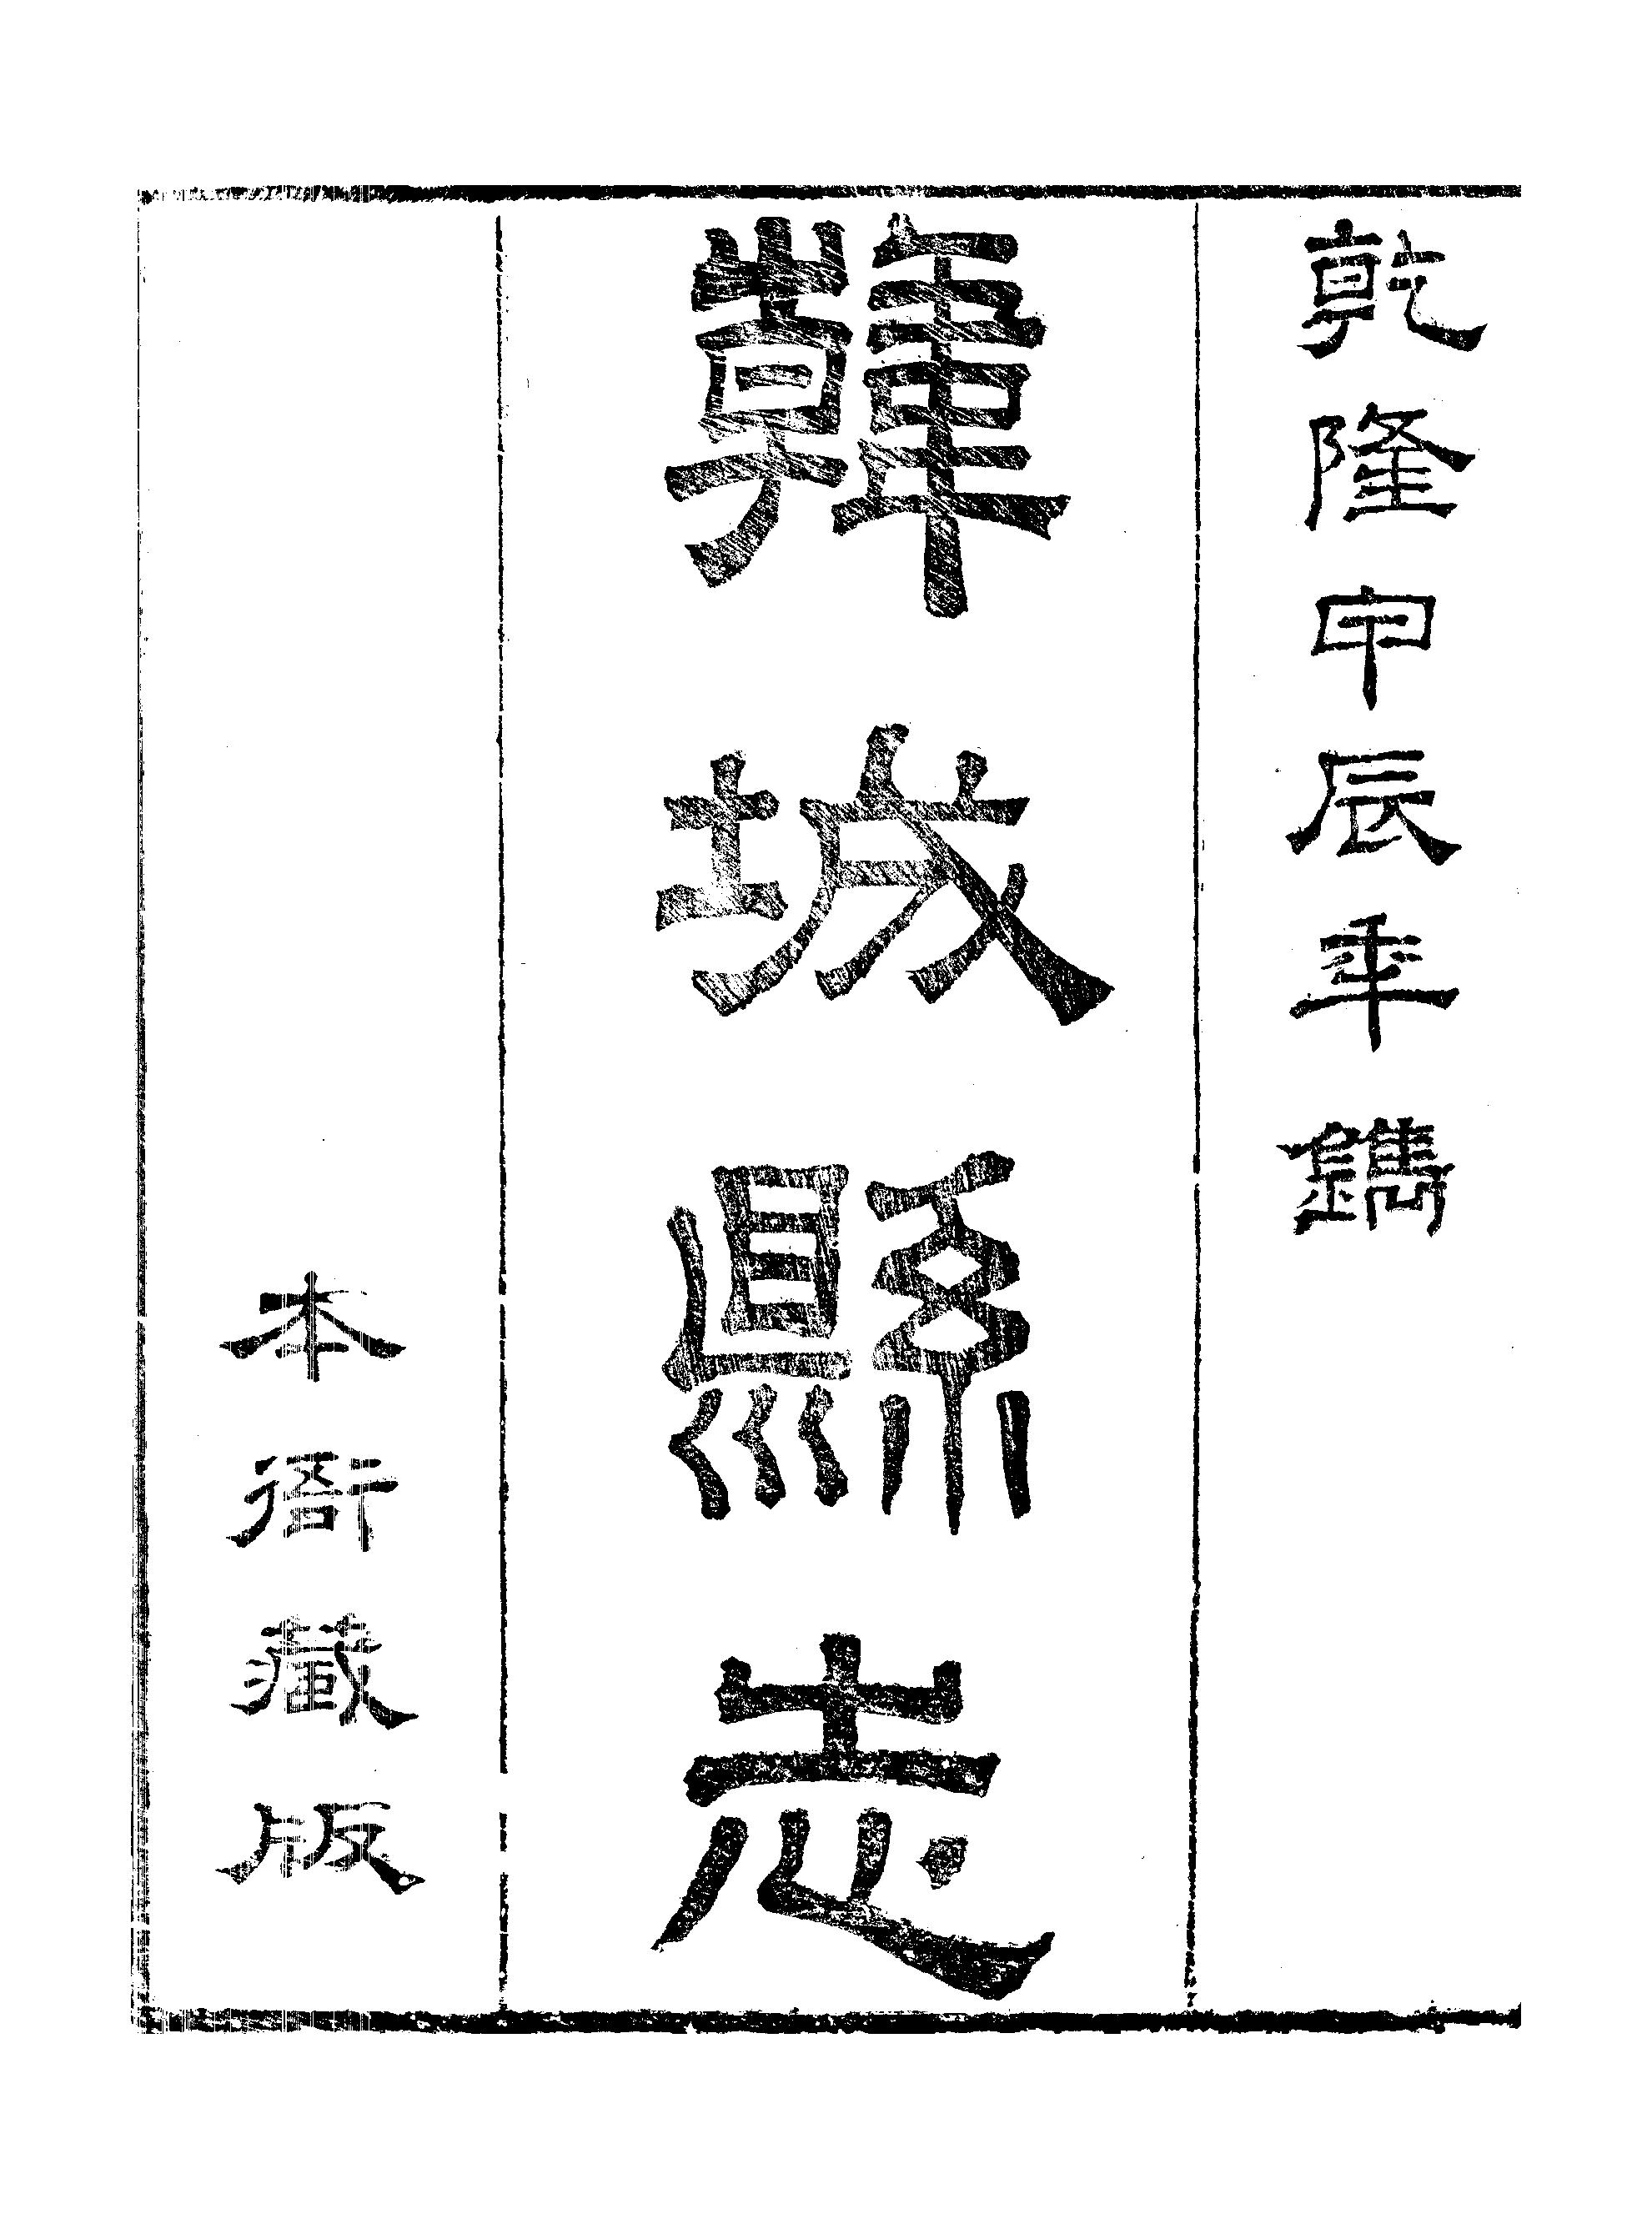 乾隆甲辰年鐫
韓城縣志
本衙藏版